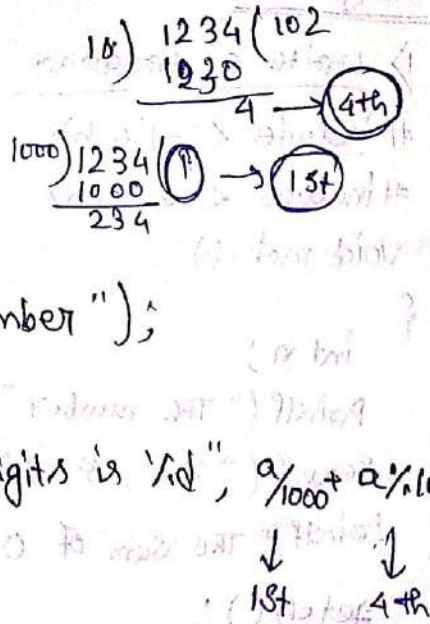 10) 1234 (102
1230
4 → 4th
1000) 1234 (1 → 1st
1000
234
mber");
igits is %d", a/1000+ a%10
↓ ↓
1st 4th